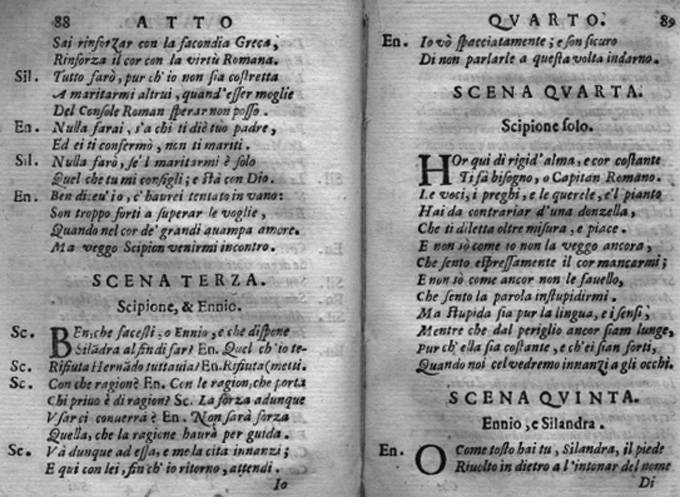 88 ATTO
Sai rinforZar con la facondia Greca,
Rinforza il cor con la virtù Romana.
Sil. Tutto farò, pur ch'io non sia costretta
A maritarmi altrui, quand'esser moglie
Del Console Roman sperar non posso.
En. Nulla farai, s'a chi ti diè tuo padre,
Ed ei ti confermò, non ti mariti.
Sil. Nulla farò, se'l maritarmi è solo
Quel che tu mi consigli; e stà con Dio.
En. Ben diceu'io, c'haurei tentato in vano:
Son troppo forti a superar le voglie,
Quando nel cor de' grandi auampa amore.
Ma veggo Scipion venirmi incontro.
SCENA TERZA.
Scipione, & Ennio.
Sc. BEn, che facesti, o Ennio, e che dispone
Silādra al fin di far? En. Quel ch'io te-
Sc. Rifiuta Hernādo tuttauia? En. Rifiuta (metti.
Sc. Con che ragion? En. Con le ragion, che porta
Chi priuo è di ragion? Sc. La forza adunque
Vsarci conuerrà? En. Non sarà forza
Quella, che la ragione haurà per guida.
Sc. Và dunque ad essa, e me la cita innanzi;
E qui con lei, fin ch'io ritorno, attendi.
Io
QVARTO. 89
En. Io vò spacciatamente; e son sicuro
Di non parlarle a questa volta indarno.
SCENA QVARTA.
Scipione solo.
HOr qui di rigid'alma, e cor costante
Ti fà bisogno, o Capitan Romano.
Le voci, i preghi, e le querele, e'l pianto
Hai da contrariar d'una donzella,
Che ti diletta oltre misura, e piace.
E non sò come io non la veggo ancora,
Che sento espressamente il cor mancarmi;
E non sò come ancor non le fauello,
Che sento la parola instupidirmi.
Ma stupida sia pur la lingua, e i sensi,
Mentre che dal periglio ancor siam lunge,
Pur ch'ella sia costante, e ch'ei sian forti,
Quando noi cel vedremo innanzi a gli occhi.
SCENA QVINTA.
Ennio, e Silandra.
En. O Come tosto hai tu, Silandra, il piede
Riuolto in dietro a l'intonar del nome
Di